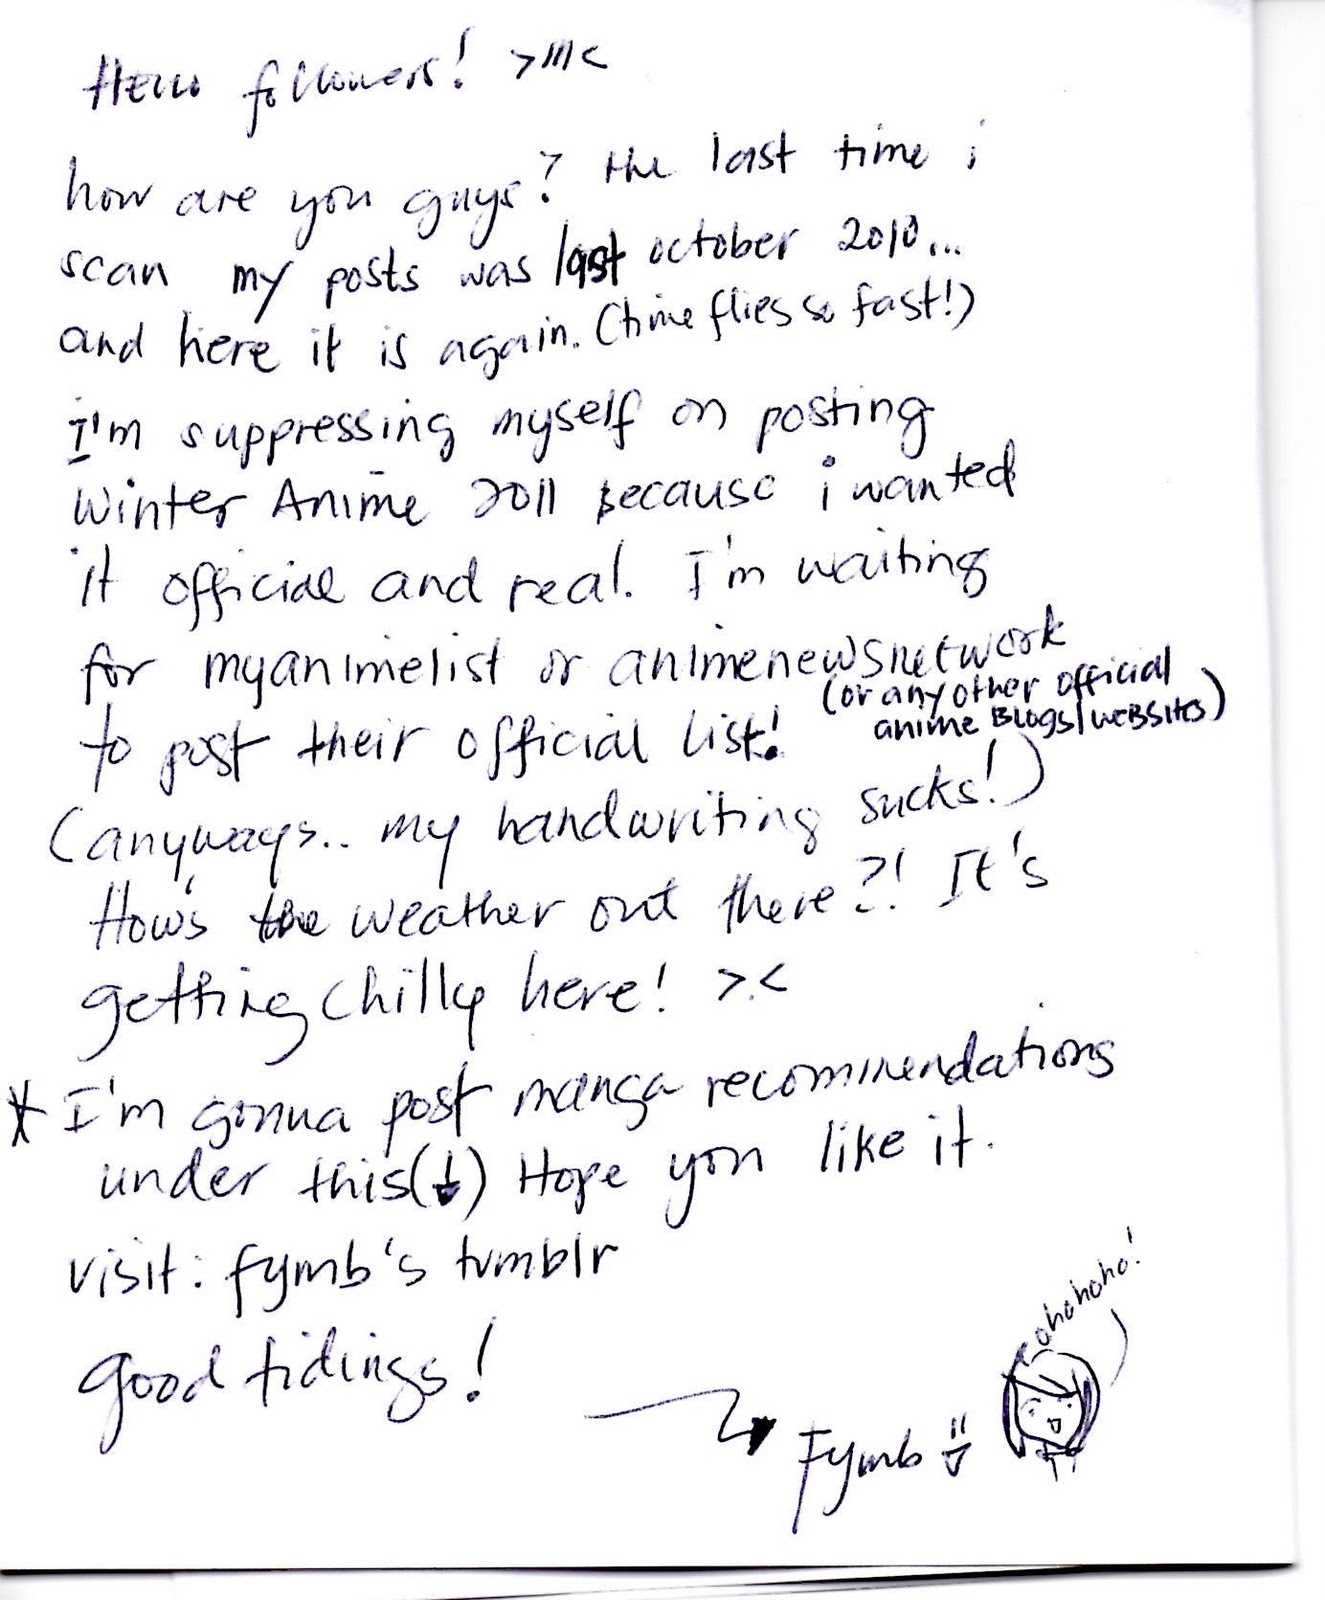 Hello followers! >'''<
how are you guys? the last time i
scan my posts was last october 2010...
and here it is again. (time flies so fast!)
I'm suppressing myself on posting
Winter Anime 2011 because i wanted
it official and real. I'm waiting
for myanimelist or animenewsnetwork
(or any other official
anime Blogs/websites)
to post their official list!
(anyways.. my handwriting sucks!)
How's the weather out there?! It's
getting chilly here! >.<
* I'm gonna post manga recommendations
under this(↓) Hope you like it.
visit: fymb's tumblr
good tidings!
ohohoho!
Fymb